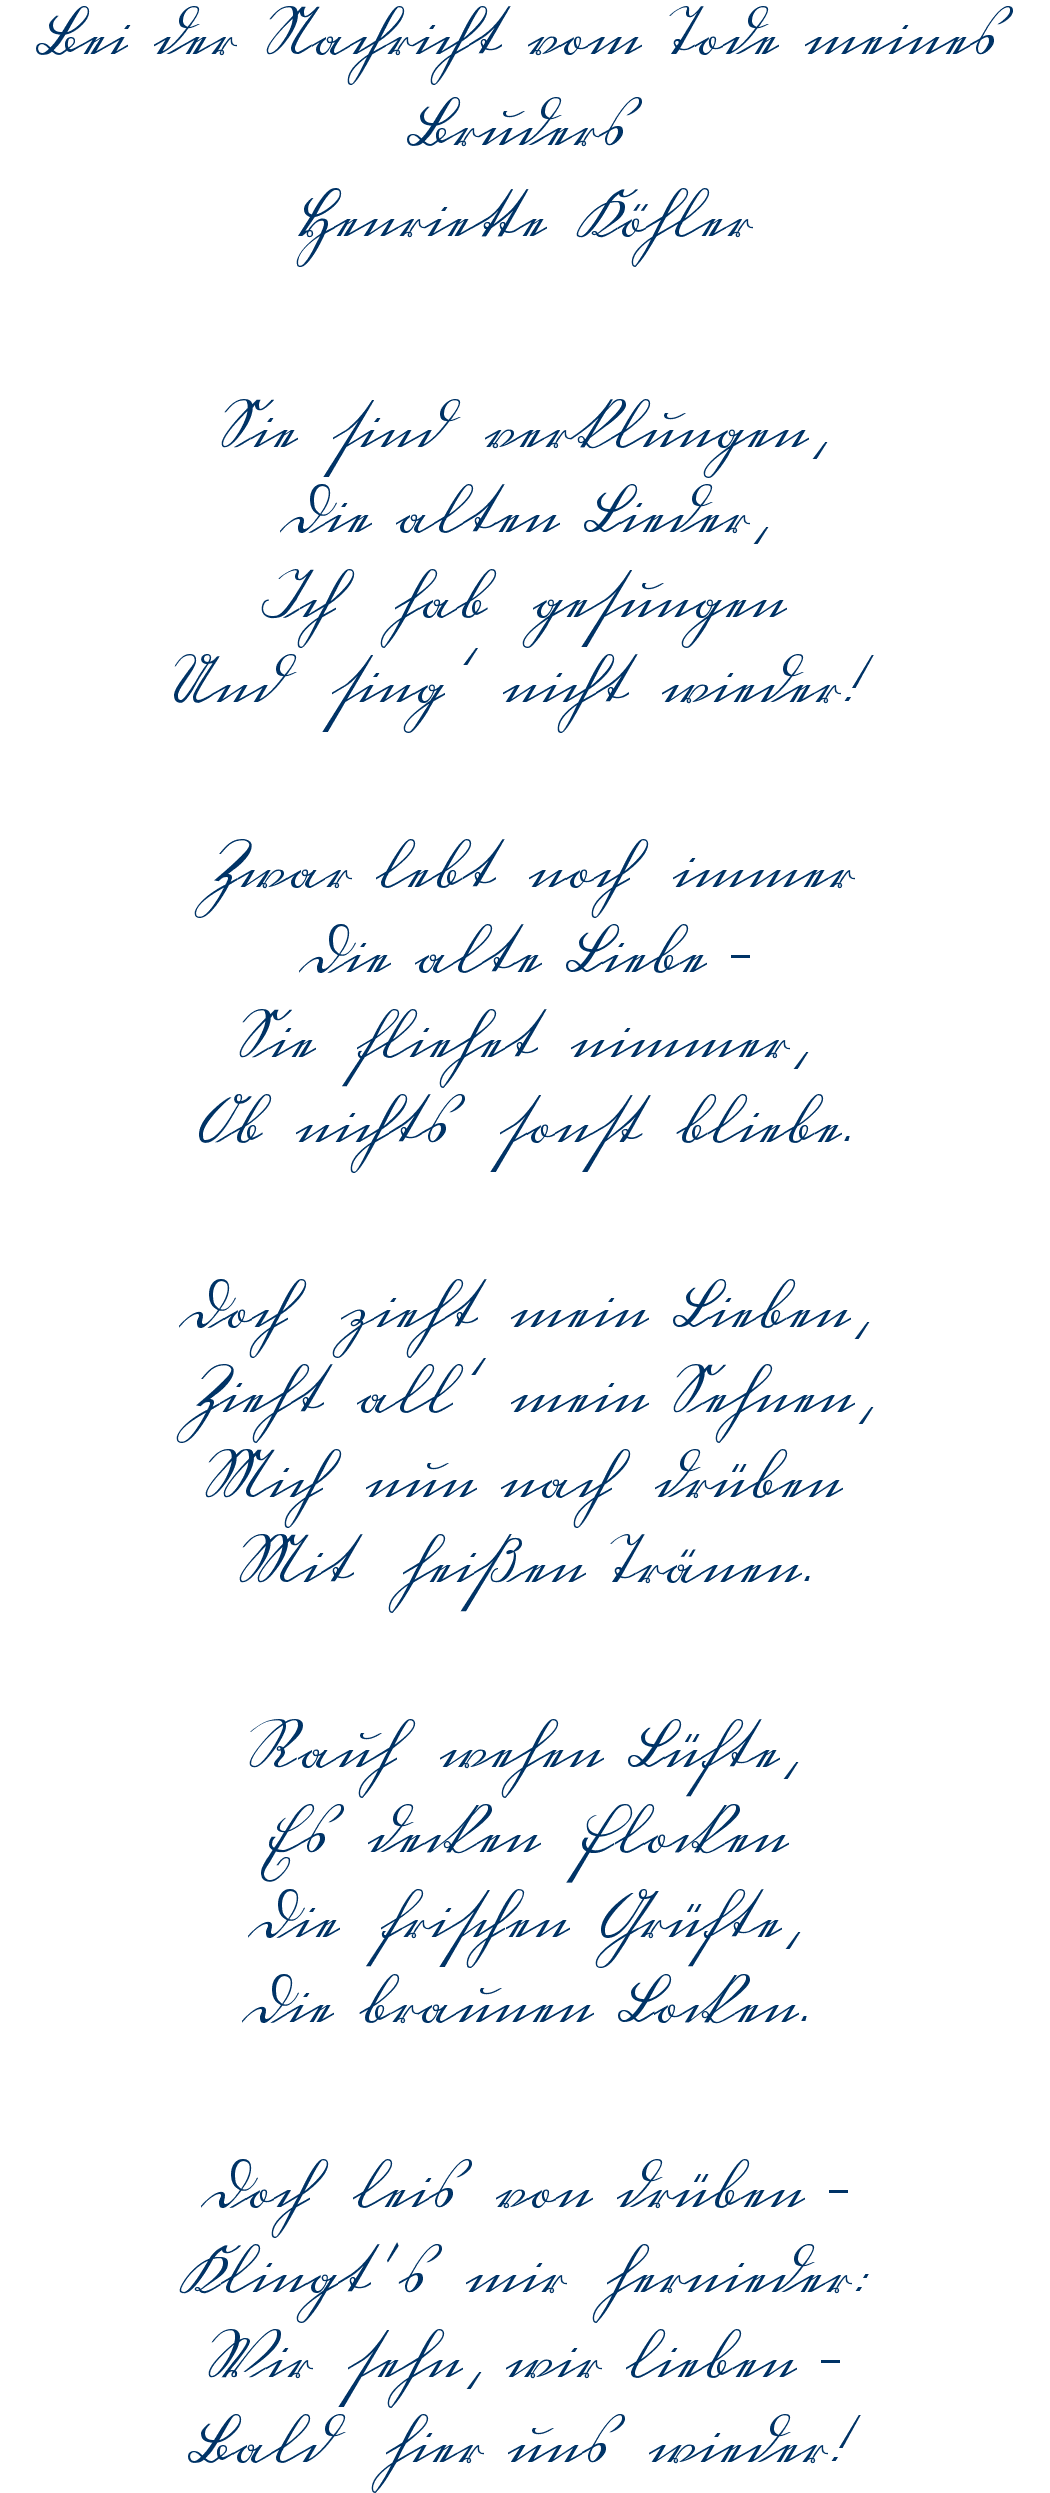 Bei der Nachricht vom Tode meines
Bruders
Henriette Köhler
Sie sind verklungen,
Die alten Lieder,
Ich hab gesungen
Und sing' nicht wieder!
Zwar lebt noch immer
Die alte Liebe -
Sie fliehet nimmer,
Ob nichts sonst bliebe.
Doch zieht mein Lieben,
Zieht all' mein Sehnen,
Mich nun nach drüben
Mit heißen Tränen.
Rauh wehen Lüfte,
Es decken Flocken
Die frischen Grüfte,
Die braunen Locken.
Doch leis von drüben -
Klingt's mir hernieder:
Wir sehn, wir lieben -
Bald hier uns wieder!